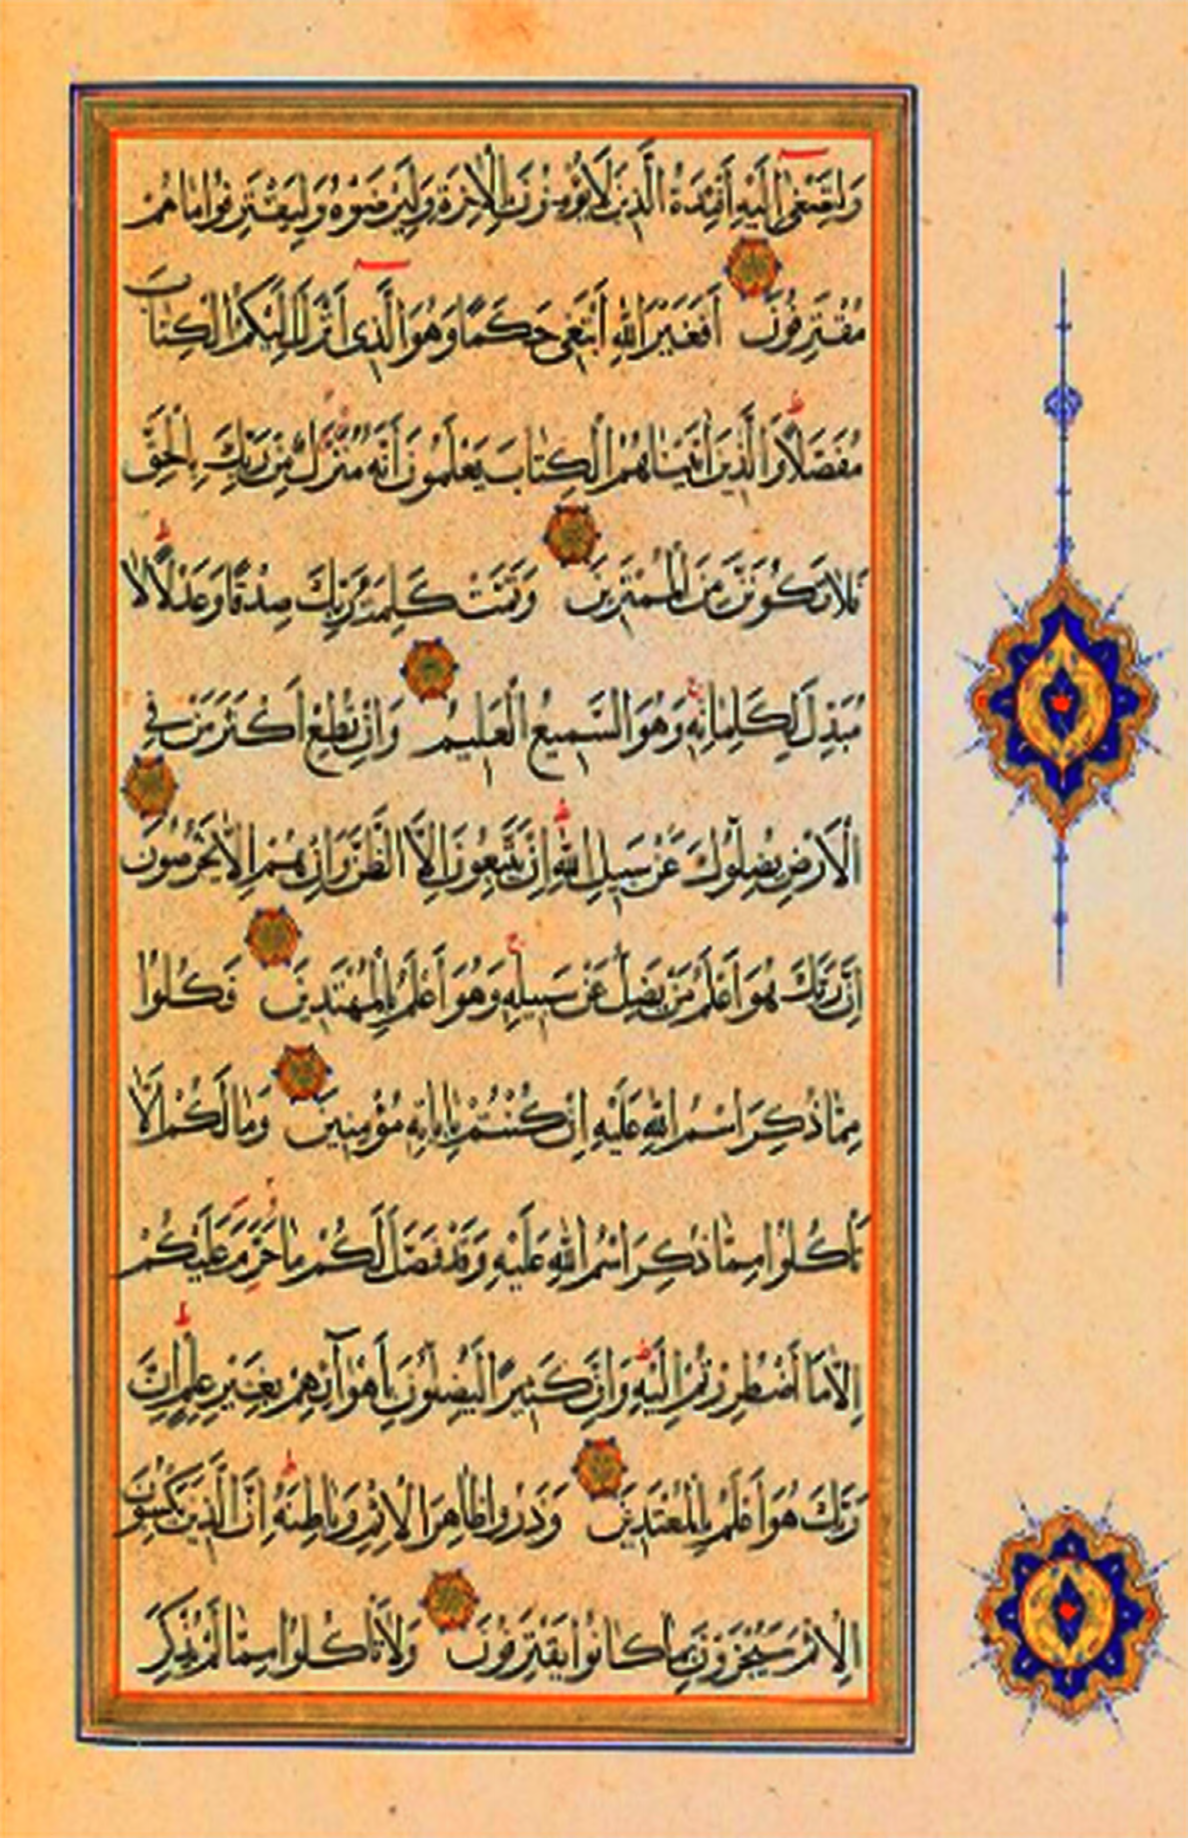 وَلِتَصْغٰى إِلَيْهِ أَفْئِدَةُ الَّذِينَ لَا يُؤْمِنُونَ بِالْاٰخِرَةِ وَلِيَرْضَوْهُ وَلِيَقْتَرِفُوا مَا هُمْ
مُقْتَرِفُونَ أَفَغَيْرَ اللّٰهِ أَبْتَغِى حَكَمًا وَهُوَ الَّذِى أَنْزَلَ إِلَيْكُمُ الْكِتَابَ
مُفَصَّلًا وَالَّذِينَ اٰتَيْنَاهُمُ الْكِتَابَ يَعْلَمُونَ أَنَّهُ مُنَزَّلٌ مِنْ رَبِّكَ بِالْحَقِّ
فَلَا تَكُونَنَّ مِنَ الْمُمْتَرِينَ وَتَمَّتْ كَلِمَةُ رَبِّكَ صِدْقًا وَعَدْلًا لَا
مُبَدِّلَ لِكَلِمَاتِهِ وَهُوَ السَّمِيعُ الْعَلِيمُ وَإِنْ تُطِعْ أَكْثَرَ مَنْ فِي
الْأَرْضِ يُضِلُّوكَ عَنْ سَبِيلِ اللّٰهِ إِنْ يَتَّبِعُونَ إِلَّا الظَّنَّ وَإِنْ هُمْ إِلَّا يَخْرُصُونَ
إِنَّ رَبَّكَ هُوَ أَعْلَمُ مَنْ يَضِلُّ عَنْ سَبِيلِهِ وَهُوَ أَعْلَمُ بِالْمُهْتَدِينَ فَكُلُوا
مِمَّا ذُكِرَ اسْمُ اللّٰهِ عَلَيْهِ إِنْ كُنْتُمْ بِاٰيَاتِهِ مُؤْمِنِينَ وَمَا لَكُمْ أَلَّا
تَأْكُلُوا مِمَّا ذُكِرَ اسْمُ اللّٰهِ عَلَيْهِ وَقَدْ فَصَّلَ لَكُمْ مَا حَرَّمَ عَلَيْكُمْ
إِلَّا مَا اضْطُرِرْتُمْ إِلَيْهِ وَإِنَّ كَثِيرًا لَيُضِلُّونَ بِأَهْوَآئِهِمْ بِغَيْرِ عِلْمٍ إِنَّ
رَبَّكَ هُوَ أَعْلَمُ بِالْمُعْتَدِينَ وَذَرُوا ظَاهِرَ الْإِثْمِ وَبَاطِنَهُ إِنَّ الَّذِينَ يَكْسِبُونَ
الْإِثْمَ سَيُجْزَوْنَ بِمَا كَانُوا يَقْتَرِفُونَ وَلَا تَأْكُلُوا مِمَّا لَمْ يُذْكَرِ